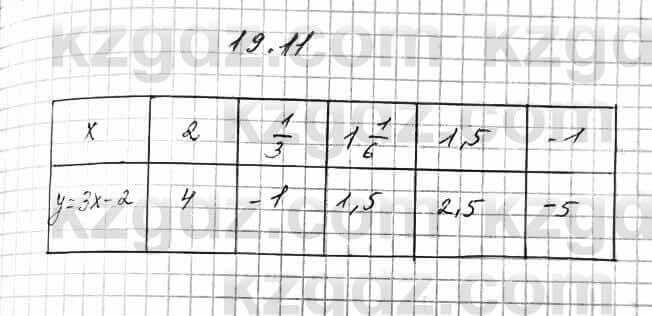 19.11
x 2 1/3 1 1/6 1,5 -1
y=3x-2 4 -1 1,5 2,5 -5
kzgdz.com kzgdz
kzgdz.com
kzgdz.com kzgdz
kzgdz.com